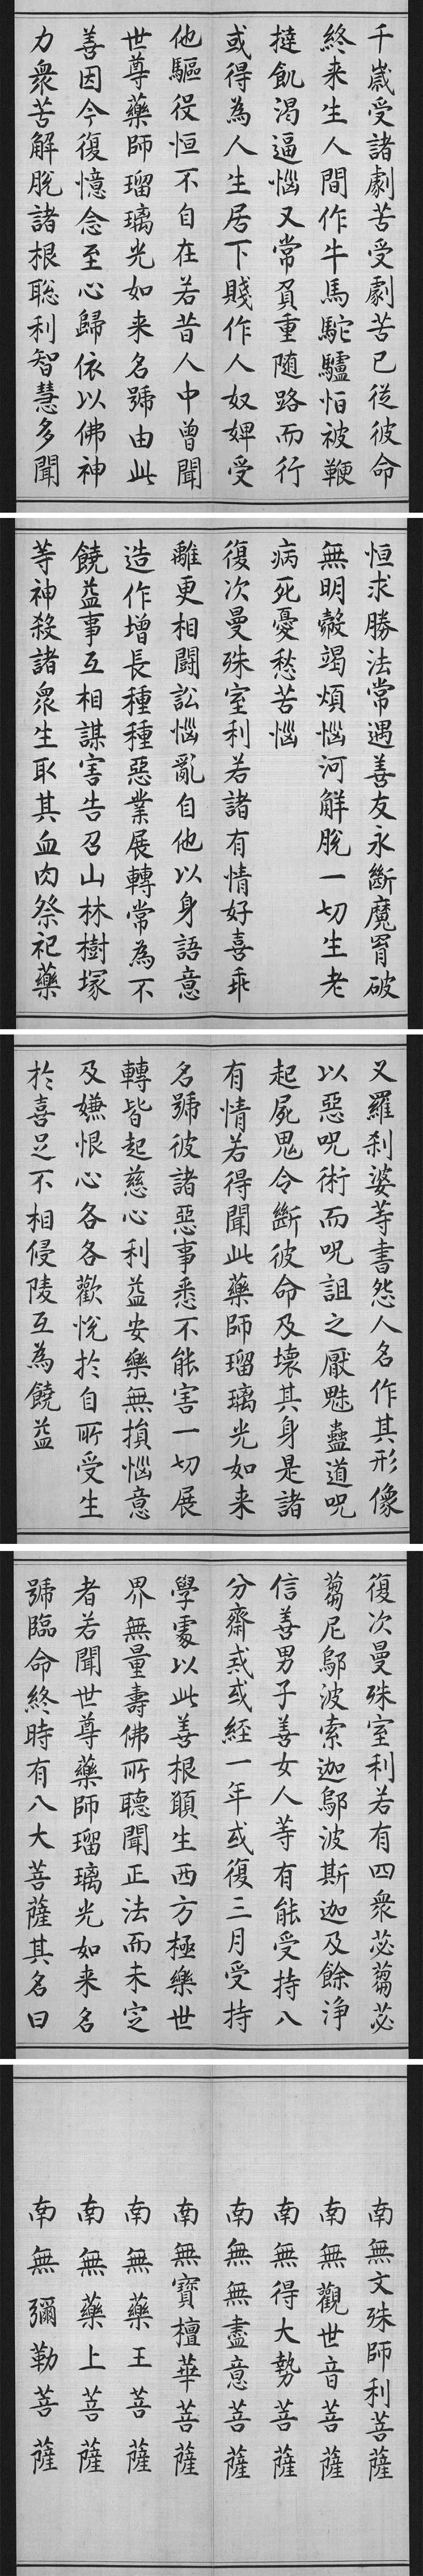 千歲受諸劇苦受劇苦已從彼命
終来生人間作牛馬駝驢怕被鞭
撻飢渴逼惱又常負重随路而行
或得為人生居下賤作人奴婢受
他驅役恒不自在若昔人中曾聞
世尊藥師瑠璃光如来名號由此
善因今復憶念至心歸依以佛神
力衆苦解脫諸根聡利智慧多聞
恒求勝法常遇善友永斷魔罥破
無明㲉竭煩惱河解脫一切生老
病死憂愁苦惱
復次曼殊室利若諸有情好喜乖
離更相鬪訟惱亂自他以身語意
造作增長種種惡業展轉常為不
饒益事互相謀害告召山林樹塚
等神殺諸衆生取其血肉祭祀藥
叉羅刹婆等書怨人名作其形像
以惡呪術而呪詛之厭魅蠱道呪
起屍鬼令斷彼命及壞其身是諸
有情若得聞此藥師瑠璃光如来
名號彼諸惡事悉不能害一切展
轉皆起慈心利益安樂無損惱意
及嫌恨心各各歡悅於自所受生
於喜足不相侵陵互為饒益
復次曼殊室利若有四衆苾蒭苾
蒭尼鄔波索迦鄔波斯迦及餘淨
信善男子善女人等有能受持八
分齋戒或經一年或復三月受持
學處以此善根願生西方極樂世
界無量壽佛所聽聞正法而未定
者若聞世尊藥師瑠璃光如来名
號臨命終時有八大菩薩其名曰
南無文殊師利菩薩
南無觀世音菩薩
南無得大勢菩薩
南無無盡意菩薩
南無寶檀華菩薩
南無藥王菩薩
南無藥上菩薩
南無彌勒菩薩